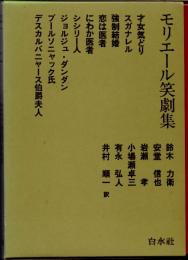 モリエール笑劇集
鈴木 力衛
安堂 信也
岩瀬 孝
小場瀬卓三
有永 弘人
井村 順一 訳
才女気どり
スガナレル
強制結婚
恋は医者
にわか医者
シシリー人
ジョルジュ・ダンダン
プールソニャック氏
デスカルバニャース伯爵夫人
白水社